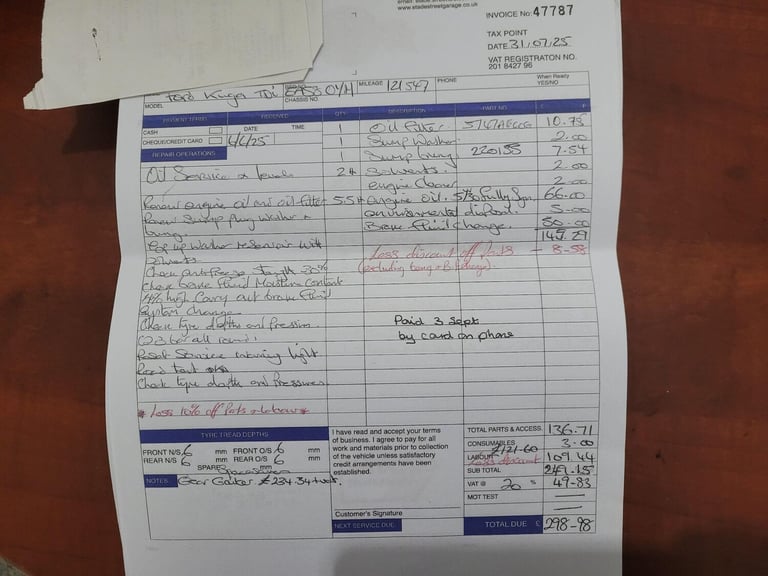 www.stadestreetgarage.co.uk
INVOICE No: 47787
TAX POINT
DATE 31.07.25
VAT REGISTRATON NO.
201 8427 96
MODEL Ford Kuga TDi
CHASSIS NO
MILEAGE 121547
PHONE
When Ready
YES/NO
PAYMENT TERMS RECEIVED QTY DESCRIPTION PART NO. £ P
CASH DATE TIME
CHEQUE/CREDIT CARD
1 Oil Filter 10.75
1 Sump Washer 2.00
1 Sump bung 220155 7.54
REPAIR OPERATIONS
Oil Service & levels
Solvents. 2.00
engine Cleaner 2.00
Renew engine oil and oil filter 5.5 engine oil 5/30 Fully Syn. 66.00
Renew Sump plug washer + bung
environmental disposal. 5.00
Brake Fluid Change. 50.00
145.29
Top up washer reservoir with Solvents
Less discount off parts - 8.58
(excluding bung + B.f. change).
Check antifreeze Strength
Check brake Fluid Moisture Content
4% high Carry out brake Fluid
System Change
Check tyre depths and pressures.
Paid 3 Sept
by card on phone
Reset Service warning light
Road test
Check tyre depths and Pressures
* Less 10% off Parts & Labour *
TYRE TREAD DEPTHS
FRONT N/S 6 mm FRONT O/S 6 mm
REAR N/S 6 mm REAR O/S 6 mm
SPARE mm
NOTES Gear Gaiter £234.34 + vat.
I have read and accept your terms
of business. I agree to pay for all
work and materials prior to collection
of the vehicle unless satisfactory
credit arrangements have been
established.
Customer's Signature
NEXT SERVICE DUE
TOTAL PARTS & ACCESS. 136.71
CONSUMABLES 3.00
£121-60
LABOUR 109.44
Less discount
SUB TOTAL 249.15
VAT @ 20 % 49-83
MOT TEST
TOTAL DUE £ 298-98